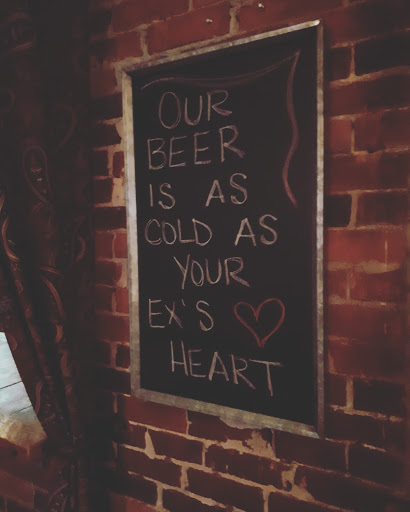 OUR
BEER
IS AS
COLD AS
YOUR
EX'S
HEART